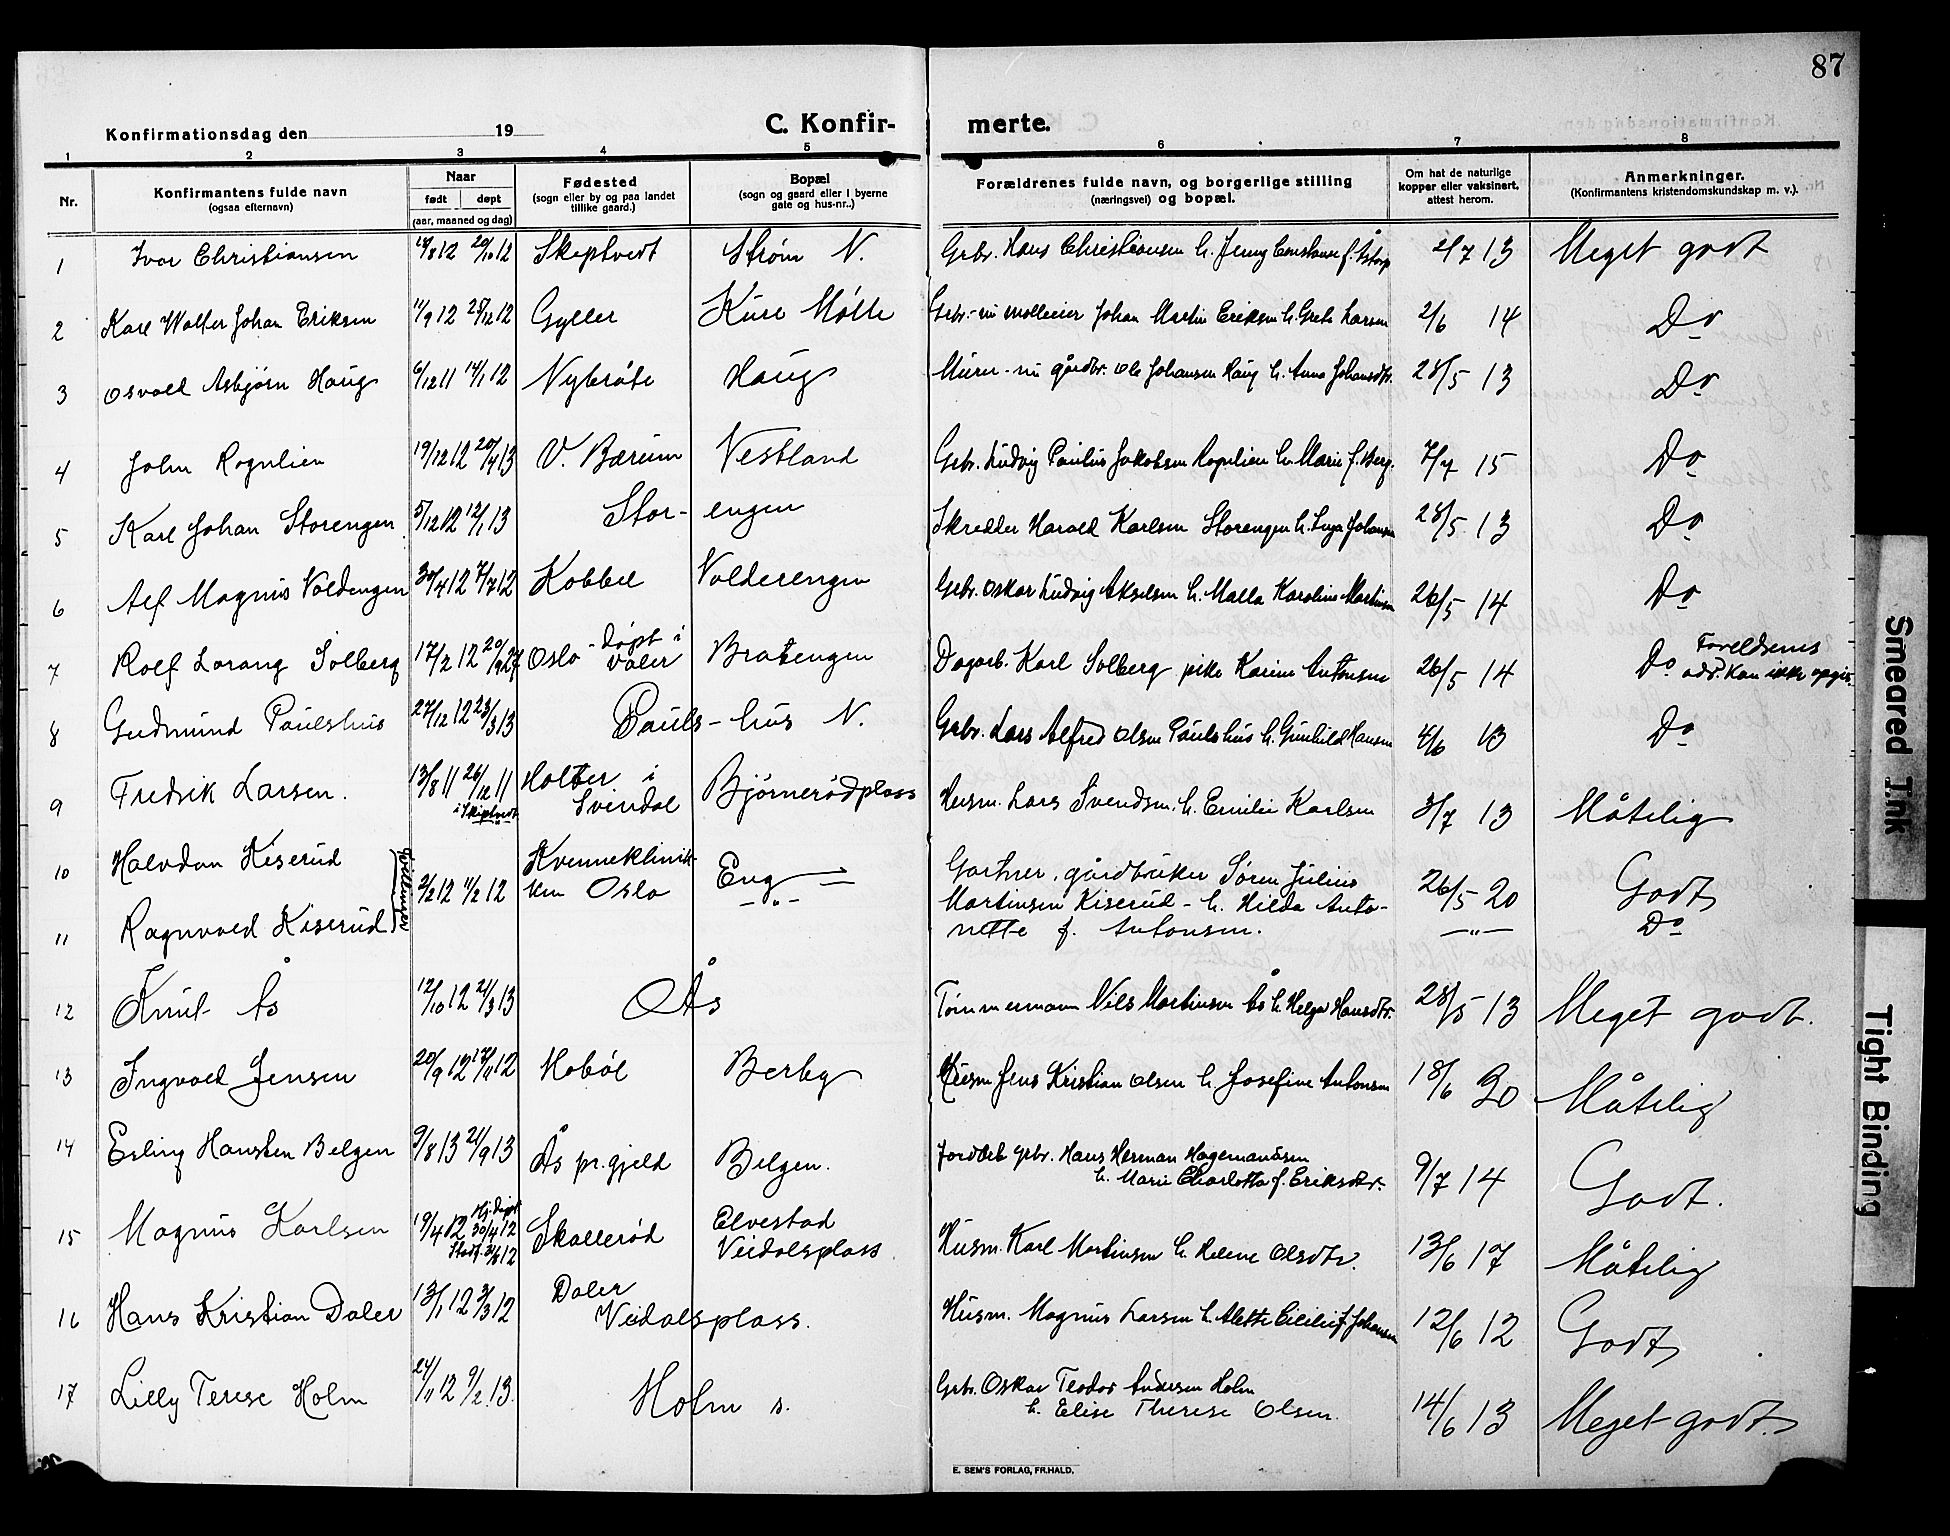 87
Konfirmationsdag den 19
C. Konfirmerte.
1 2 3 4 5 6 7 8
Nr.
Konfirmantens fulde navn
(ogsaa efternavn)
Naar
født døpt
(aar, maaned og dag)
Fødested
(sogn eller by og paa landet
tillike gaard.)
Bopæl
(sogn og gaard eller i byerne
gate og hus-nr..)
Forældrenes fulde navn, og borgerlige stilling
(næringsvei) og bopæl.
Om hat de naturlige
kopper eller vaksinert,
attest herom.
Anmerkninger.
(Konfirmantens kristendomskundskap m. v.).
1 Ivar Christiansen 18/8 12 20/10 12 Skiptvedt Strøm N. Grbr. Hans Christiansen h. Jenny Constance f. 2/7 13 Meget godt
2 Karl Walter Johan Eriksen 11/9 12 25/12 12 Gyller Kure Mølle Grbr. nu mølleeier Johan Martin Eriksen h. Grete Larsen 2/6 14 Do
3 Osvald Asbjørn Haug 6/12 11 14/1 12 Nybråte Haug Murer - nu gårdbr. Ole Johansen Haug h. Anna Johansdtr. 28/5 13 Do
4 John Rognlien 19/12 12 20/4 13 V. Bærum Vestland Grbr. Ludvig Paulus Jakobsen Rognlien h. Marie f. Berg. 7/7 15 Do
5 Karl Johan Storengen 5/12 12 12/1 13 Stor- engen Skredder Harald Karlsen Storengen h. Inga Johansen 28/5 13 Do
6 Alf Magnus Voldengen 30/4 12 7/7 12 Kobbel Volderengen Grbr. Oskar Ludvig Akselsen h. Malla Karoline Martinsen 26/5 14 Do
7 Rolf Lorang Solberg 17/2 12 20/9 27 Oslo - døpt i
Våler Bratengen Dagarb. Karl Solberg pike Karine Antonsen 26/5 14 Do Foreldrenes
adr. kan ikke opgis.
8 Gudmund Paulshus 27/12 12 23/3 13 Pauls- hus N. Grbr. Lars Alfred Olsen Paulshus h. Gunhild Hansen 4/6 13 Do
9 Fredrik Larsen. 13/8 11 26/12 11
i Skiptvedt Holter i
Svindal Bjørnerødplass Husm. Lars Svendsen. h. Emilie Karlsen 3/7 13 Måtelig
10 Halvdan Kiserud
tvillinger 2/2 12 11/2 12 Kvinneklinik-
ken Oslo Eng Gartner, gårdbruker Søren Julius
Martinsen Kiserud - h. Hilda Anto-
nette f. Antonsen. 26/5 20 Godt
11 Ragnvald Kiserud -"- -"- Do
12 Knut Ås 12/10 12 21/3 13 Ås Tømmermann Nils Martinsen Ås h. Helga Hansdtr. 28/5 13 Meget godt.
13 Ingvald Jensen 20/9 12 17/11 12 Hobøl Berby Husm Jens Kristian Olsen h. Josefine Antonsen 18/6 20 Måtelig
14 Erling Hansten Belgen 9/8 13 21/9 13 Ås pr.gjeld Belgen. Forddeb grbr. Hans Herman Hagemandsen
h. Marie Charlotta f. Eriksdtr. 9/7 14 Godt.
15 Magnus Karlsen 19/4 12 Hj. døpt
30/4 12
Stadf. 2/6 12 Skallerød Elvestad
Veidalsplass Husm. Karl Martinsen h. Helene Olsdtr. 13/6 17 Måtelig
16 Hans Kristian Daler 13/1 12 3/3 12 Daler
Veidalsplass. Husm. Magnus Larsen h. Alette Cicilie f. Johansen 12/6 12 Godt
17 Lilly Terese Holm 24/11 12 9/2 13. Holm s. Grbr. Oskar Teodor Andersen Holm
h. Elise Therese Olsen. 14/6 13 Meget godt.
E. SEM'S FORLAG, FR.HALD.
Smeared Ink
Tight Binding